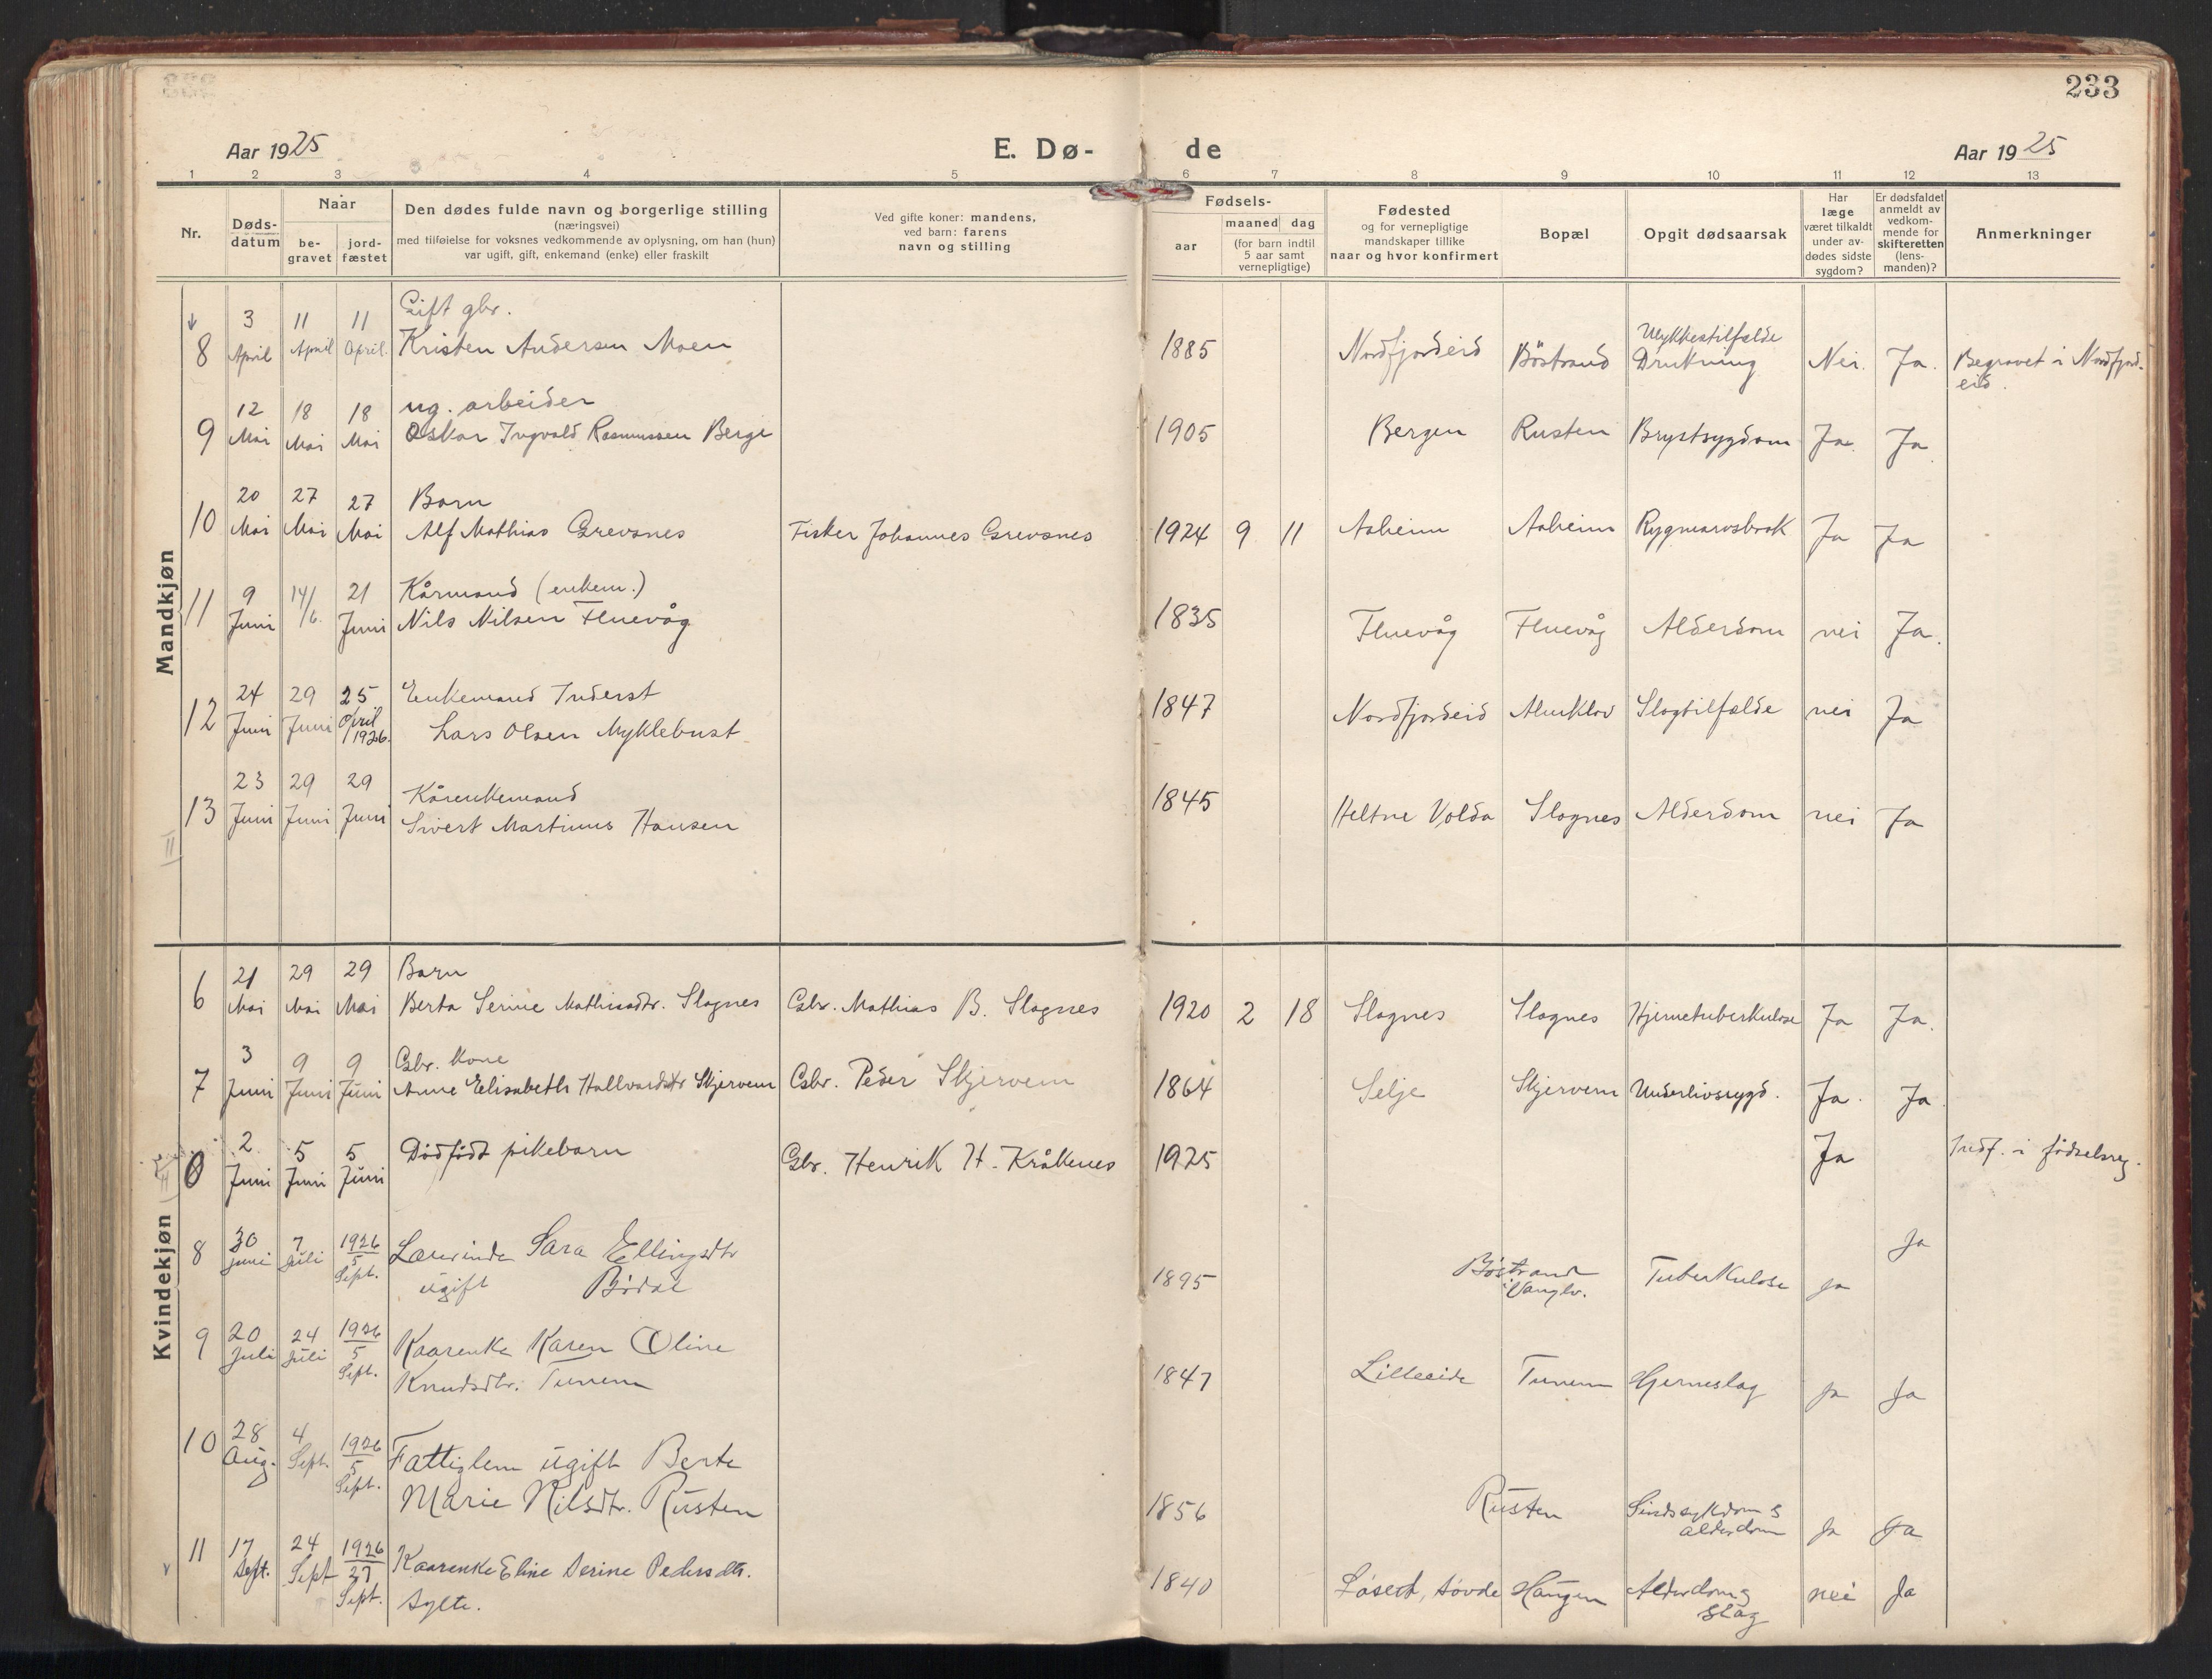 233
Aar 1925
E. Dø-
de
Aar 1925
1 2 3 4 5 6 7 8 9 10 11 12 13
Nr.
Døds-
datum
Naar
be-
gravet
jord-
fæstet
Den dødes fulde navn og borgerlige stilling
(næringsvei)
med tilføielse for voksnes vedkommende av oplysning, om han (hun)
var ugift, gift, enkemand (enke) eller fraskilt
Ved gifte koner: mandens,
ved barn: farens
navn og stilling
Fødsels-
aar
maaned dag
(for barn indtil
5 aar samt
vernepligtige)
Fødested
og for vernepligtige
mandskaper tillike
naar og hvor konfirmert
Bopæl
Opgit dødsaarsak
Har
læge
været tilkaldt
under av-
dødes sidste
sygdom?
Er dødsfaldet
anmeldt av
vedkom-
mende for
skifteretten
(lens-
manden)?
Anmerkninger
Mandkjøn
3 11 11 Gift gbr. Ulykkestilfælde
8 April April April. Kristen Andersen Moen 1885 Nordfjordeid Böstrand Drukning Nei. Ja. Begravet i Nordfjord-
eid.
12 18 18 ug. arbeider
9 Mai Mai Mai Oskar Ingvald Rasmussen Berge 1905 Bergen Rusten Brystsygdom Ja. Ja.
20 27 27 Barn
10 Mai Mai Mai Alf Mathias Grevsnes Fisker Johannes Grevsnes 1924 9 11 Aaheim Aaheim Rygmarvsbrok Ja Ja
9 14/6. 21 Kårmand (enkem.)
11 Juni Juni Nils Nilsen Fluevåg 1835 Fluevåg Fluevåg Alderdom nei Ja.
24 29 25 Enkemand Inderst
12 Juni Juni April 1926. Lars Olsen Myklebust 1847 Nordfjordeid Almklov Slagtilfælde nei Ja
23 29 29 Kårenkemand
13 Juni Juni Juni Sivert Martinus Hansen 1845 Heltne Volda Slagnes Alderdom nei Ja
Kvindekjøn
21 29 29 Barn
6 Mai Mai Mai Berta Serine Mathiasdtr. Slagnes Gbr. Mathias B. Slagnes 1920 2 18 Slagnes Slagnes Hjernetuberkulose Ja Ja.
3 9 9 Gbr. kone
7 Juni Juni Juni Anne Elisabeth Hallvardsdtr Skjervem Gbr. Peder Skjervem 1864 Selje Skjervem Underlivssygd. Ja. Ja.
2 5 5
0 Juni Juni Juni Dödfödt pikebarn Gbr. Henrik H. Kråkenes 1925 Ja Indf. i födselsreg.
30 7 1926
8 juni juli 5 Sept. Laurinda Sara Ellingsdtr Ja
ugift Bødal 1895 Bøstrand i Vanylv. Tuberkulose ja
20 24 1926
9 Juli juli 5 Sept. Kaarenke Karen Oline
Knudsdtr. Tunem 1847 Lilleeide Tunem Hjerneslag ja Ja
28 4 1926
10 Aug. Sept. 5 Sept. Fattiglem ugift Berte
Marie Nilsdtr. Rusten 1856 Rusten Sindssykdom &
alderdom ja Ja
17 24 1926
11 Sept. Sept 27 Sept. Kaarenke Eline Serine Pedersdtr.
Sylte. 1840 Løset, Søvde Haugen Alderdom &
slag nei Ja